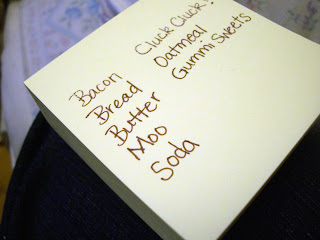 Bacon
Bread
Butter
Moo
Soda
Cluck Cluck!
Oatmeal
Gummi Sweets